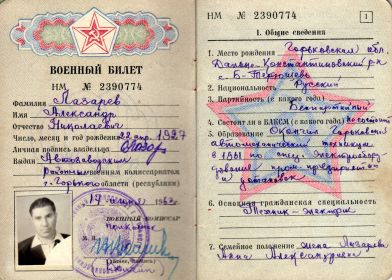 ВОЕННЫЙ БИЛЕТ
НМ № 2390774
Фамилия Лазарев
Имя Александр
Отчество Николаевич
Число, месяц и год рождения 22 1927
Личная подпись владельца
Выдан Автозаводским
районным военным комиссариатом
г. Горького (области республики)
19 1963
ВОЕННЫЙ КОМИССАР
М. П.
НМ № 2390774
1
I. Общие сведения
1. Место рождения Горьковская обл.
Дальне-Константиновский р-н
с. Б-Терюшево
2. Национальность Русский
3. Партийность (с какого года)
Беспартийный
4. Состоит ли в ВЛКСМ (с какого года) не состоит
5. Образование Окончил Горьковский
автомеханический техникум
в 1961 по спец. Электрооборудо
вание пром. предприятий
и установок
6. Основная гражданская специальность
Техник-электрик
7. Семейное положение жена Лазарева
Анна Александровна